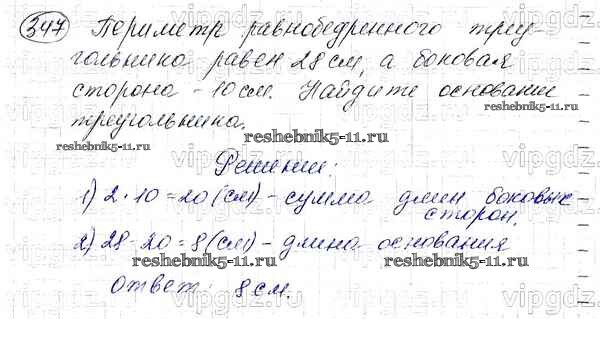 347 Периметр равнобедренного треу-
гольника равен 28 см, а боковая
сторона - 10 см. Найдите основание
треугольника.
reshebnik5-11.ru
reshebnik5-11.ru
reshebnik5-11.ru
Решение:
1) 2 · 10 = 20 (см) - сумма длин боковых
сторон.
2) 28 - 20 = 8 (см) - длина основания
reshebnik5-11.ru
reshebnik5-11.ru
Ответ: 8 см.
vipgdz.com